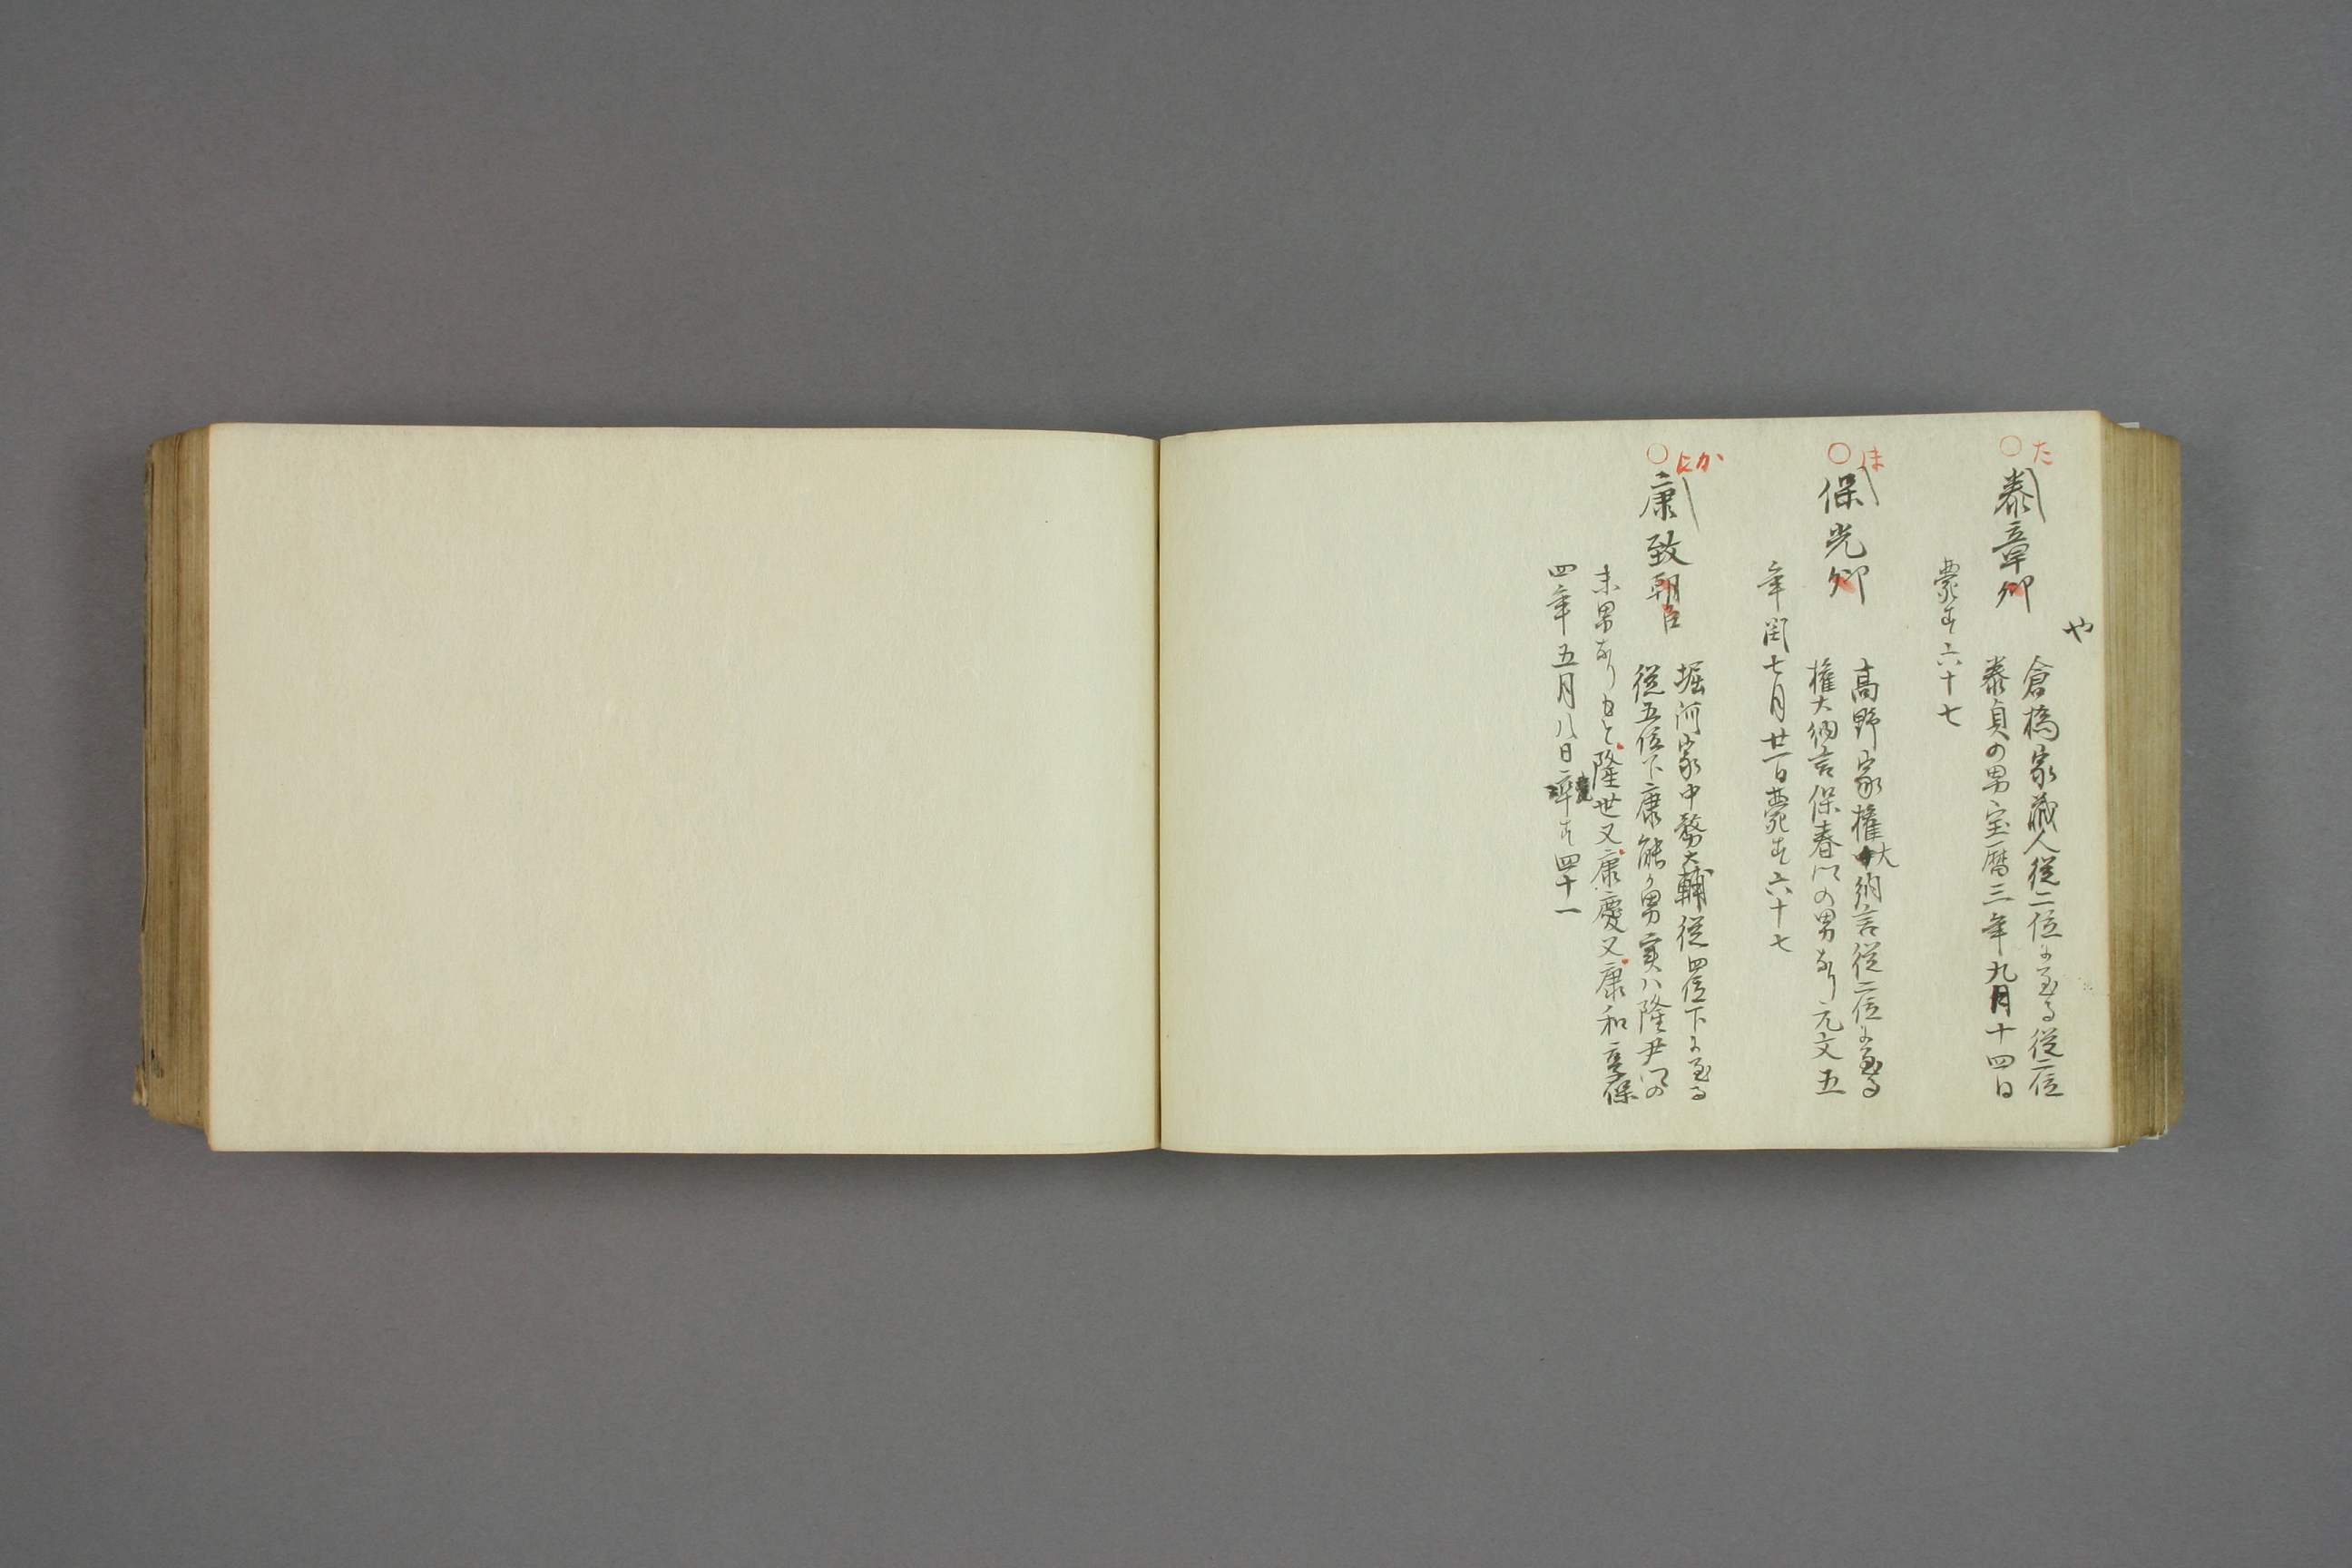 や
た
○泰章卿
倉橋家蔵人従二位に至る従二位
泰貞の男宝暦三年九月十四日
薨す六十七
ほ
○保光卿
高野家権大納言従二位に至る
権大納言保春卿の男なり元文五
年閏七月廿一日薨す六十七
かに
○康致朝臣
堀河家中務大輔従四位下に至る
従五位下康能の男実ハ隆尹卿の
末男なりもと隆世又康慶又康和享保
四年五月八日卒す四十一